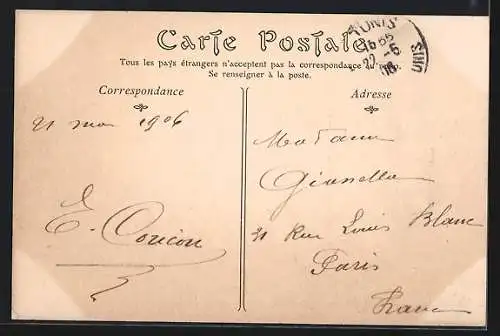 Carte Postale
TUNIS
16 55
22 -5
06
TUNIS
Tous les pays étrangers n'acceptent pas la correspondance au verso.
Se renseigner à la poste.
Correspondance
Adresse
21 mai 1906
Madame
31 Rue Louis Blanc
Paris
France